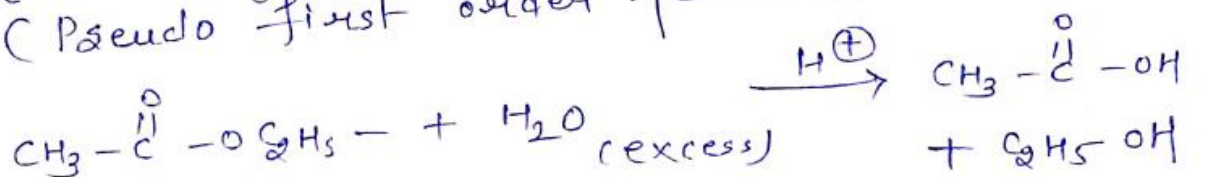 ( Pseudo first order
H⊕
CH3 - C(=O) - OC2H5 - + H2O (excess) → CH3 - C(=O) - OH
+ C2H5 OH